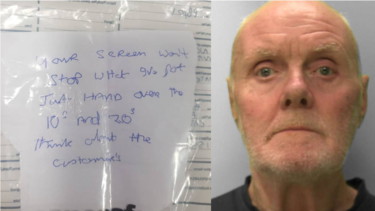 Your SCREEN won't
STOP WHAT I've got
Just HAND over the
10s AND 20s
think about the
customers